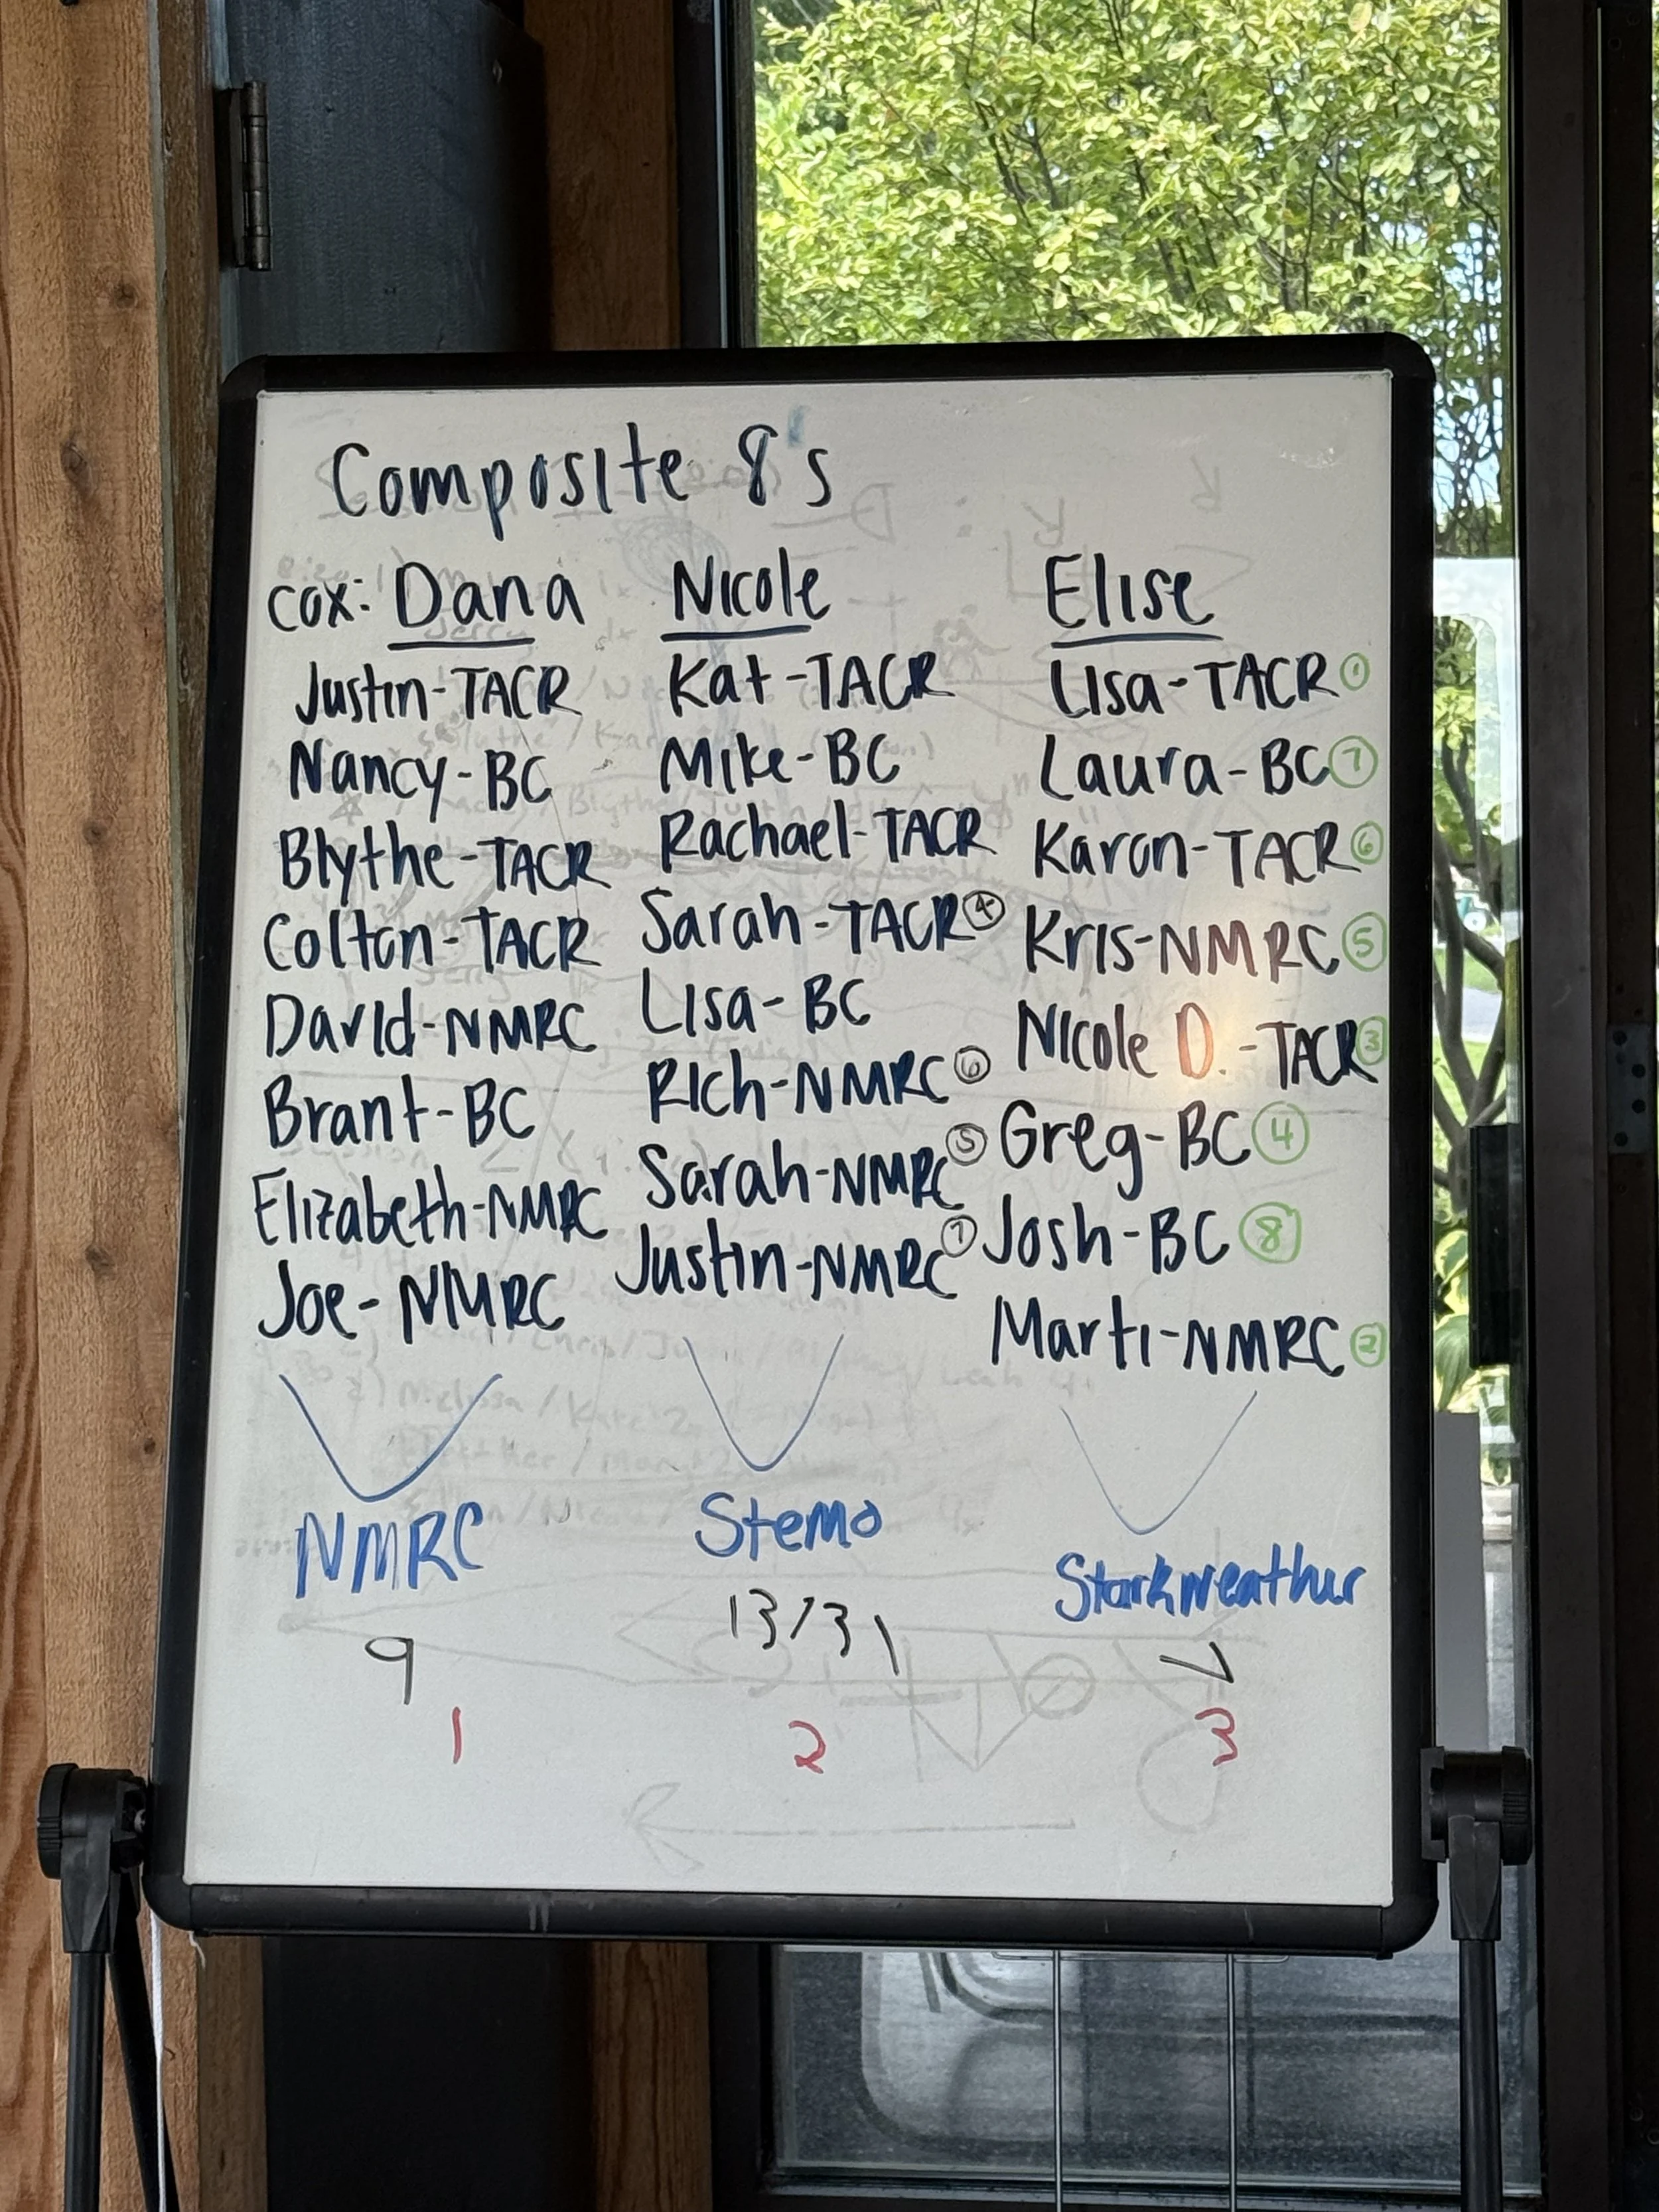 Composite 8's
cox: Dana
Justin-TACR
Nancy-BC
Blythe-TACR
Colton-TACR
David-NMRC
Brant-BC
Elizabeth-NMRC
Joe-NMRC
NMRC
9
1
Nicole
Kat-TACR
Mike-BC
Rachael-TACR
Sarah-TACR 4
Lisa-BC
Rich-NMRC 6
Sarah-NMRC 5
Justin-NMRC 7
Stemo
13/31
2
Elise
Lisa-TACR 1
Laura-BC 7
Karen-TACR 6
Kris-NMRC 5
Nicole D.-TACR 3
Greg-BC 4
Josh-BC 8
Marti-NMRC 2
Starkweather
7
3